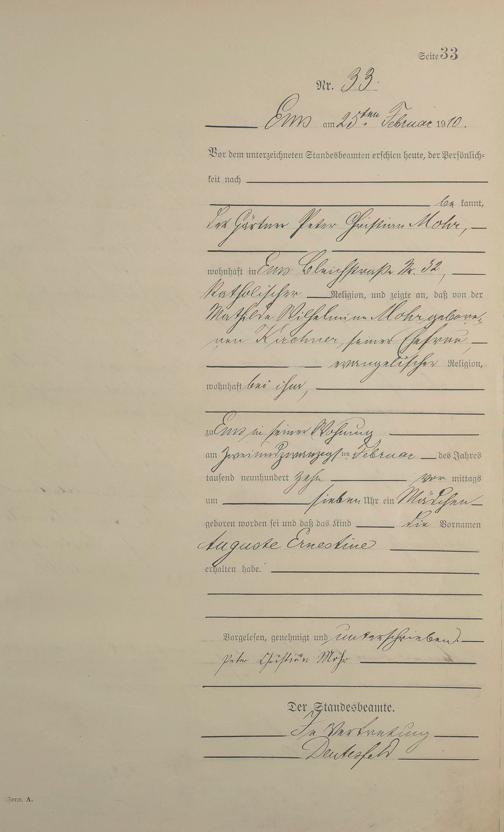 Seite 33
Nr. 33.
Ems am 25ten Februar 1910.
Vor dem unterzeichneten Standesbeamten erschien heute, der Persönlich-
keit nach
be kannt,
der Gärtner Peter Christian Mohr,
wohnhaft in Ems Bleichstraße Nr. 32,
katholischer Religion, und zeigte an, daß von der
Mathilde Wilhelmine Mohr gebore-
nen Kirchner, seiner Ehefrau,
evangelischer Religion,
wohnhaft bei ihm,
zu Ems, in seiner Wohnung
am zweiundzwanzigsten Februar des Jahres
tausend neunhundert zehn vor mittags
um sieben Uhr ein Mädchen
geboren worden sei und daß das Kind die Vornamen
Auguste Ernestine
erhalten habe.
Vorgelesen, genehmigt und unterschrieben.
Peter Christian Mohr
Der Standesbeamte.
In Vertretung
Form. A.